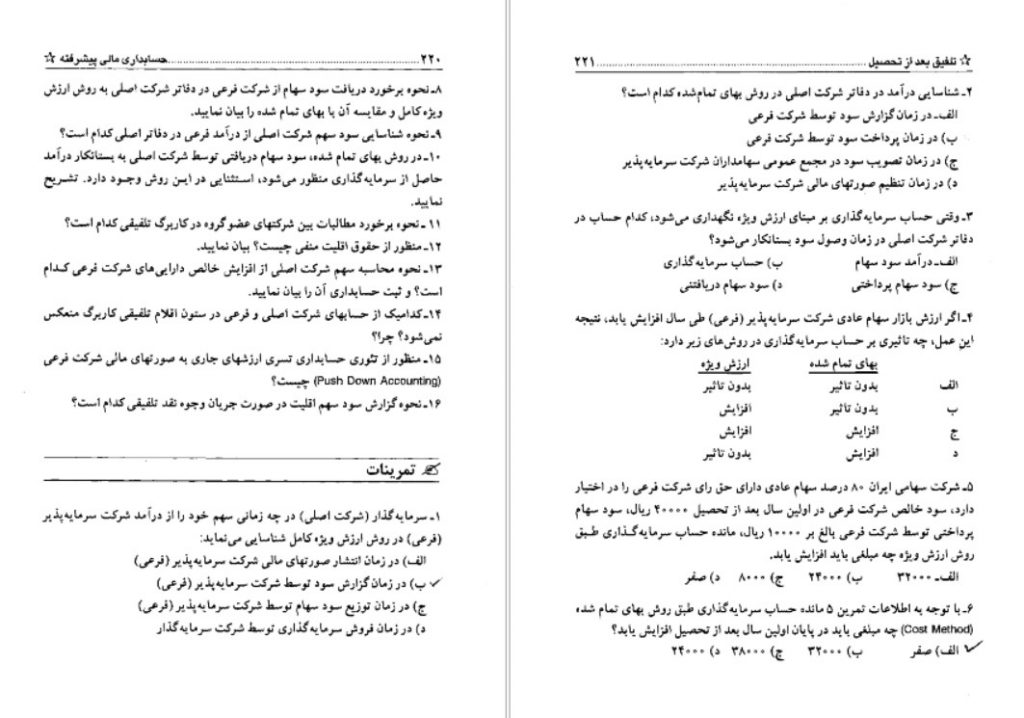 ۲۲۰ ........ حسابداری مالی پیشرفته ☆
۸ـ نحوه برخورد دریافت سود سهام از شرکت فرعی در دفاتر شرکت اصلی به روش ارزش
ویژه کامل و مقایسه آن با بهای تمام شده را بیان نمایید.
۹ـ نحوه شناسایی سود سهم شرکت اصلی از درآمد فرعی در دفاتر اصلی کدام است؟
۱۰ـ در روش بهای تمام شده، سود سهام دریافتی توسط شرکت اصلی به بستانکار درآمد
حاصل از سرمایه‌گذاری منظور می‌شود، استثنایی در این روش وجود دارد. تشریح
نمایید.
۱۱ـ نحوه برخورد مطالبات بین شرکتهای عضو گروه در کاربرگ تلفیقی کدام است؟
۱۲ـ منظور از حقوق اقلیت منفی چیست؟ بیان نمایید.
۱۳ـ نحوه محاسبه سهم شرکت اصلی از افزایش خالص دارایی‌های شرکت فرعی کدام
است؟ و ثبت حسابداری آن را بیان نمایید.
۱۴ـ کدامیک از حسابهای شرکت اصلی و فرعی در ستون اقلام تلفیقی کاربرگ منعکس
نمی‌شود؟ چرا؟
۱۵ـ منظور از تئوری حسابداری تسری ارزشهای جاری به صورتهای مالی شرکت فرعی
(Push Down Accounting) چیست؟
۱۶ـ نحوه گزارش سود سهم اقلیت در صورت جریان وجوه نقد تلفیقی کدام است؟
تمرینات
۱ـ سرمایه‌گذار (شرکت اصلی) در چه زمانی سهم خود را از درآمد شرکت سرمایه‌پذیر
(فرعی) در روش ارزش ویژه کامل شناسایی می‌نماید:
الف) در زمان انتشار صورتهای مالی شرکت سرمایه‌پذیر (فرعی)
✓ ب) در زمان گزارش سود توسط شرکت سرمایه‌پذیر (فرعی)
ج) در زمان توزیع سود سهام توسط شرکت سرمایه‌پذیر (فرعی)
د) در زمان فروش سرمایه‌گذاری توسط شرکت سرمایه‌گذار
☆ تلفیق بعد از تحصیل ........ ۲۲۱
۲ـ شناسایی درآمد در دفاتر شرکت اصلی در روش بهای تمام‌شده کدام است؟
الف ـ در زمان گزارش سود توسط شرکت فرعی
ب) در زمان پرداخت سود توسط شرکت فرعی
ج) در زمان تصویب سود در مجمع عمومی سهامداران شرکت سرمایه‌پذیر
د) در زمان تنظیم صورتهای مالی شرکت سرمایه‌پذیر
۳ـ وقتی حساب سرمایه‌گذاری بر مبنای ارزش ویژه نگهداری می‌شود، کدام حساب در
دفاتر شرکت اصلی در زمان وصول سود بستانکار می‌شود؟
الف ـ درآمد سود سهام ب) حساب سرمایه‌گذاری
ج) سود سهام پرداختی د) سود سهام دریافتنی
۴ـ اگر ارزش بازار سهام عادی شرکت سرمایه‌پذیر (فرعی) طی سال افزایش یابد، نتیجه
این عمل، چه تاثیری بر حساب سرمایه‌گذاری در روش‌های زیر دارد:
بهای تمام شده ارزش ویژه
الف بدون تاثیر بدون تاثیر
ب بدون تاثیر افزایش
ج افزایش افزایش
د افزایش بدون تاثیر
۵ـ شرکت سهامی ایران ۸۰ درصد سهام عادی دارای حق رای شرکت فرعی را در اختیار
دارد، سود خالص شرکت فرعی در اولین سال بعد از تحصیل ۴۰۰۰۰ ریال، سود سهام
پرداختی توسط شرکت فرعی بالغ بر ۱۰۰۰۰ ریال، مانده حساب سرمایه‌گذاری طبق
روش ارزش ویژه چه مبلغی باید افزایش یابد.
الف ـ ۳۲۰۰۰ ب) ۲۴۰۰۰ ج) ۸۰۰۰ د) صفر
۶ـ با توجه به اطلاعات تمرین ۵ مانده حساب سرمایه‌گذاری طبق روش بهای تمام شده
(Cost Method) چه مبلغی باید در پایان اولین سال بعد از تحصیل افزایش یابد؟
✓ الف) صفر ب) ۳۲۰۰۰ ج) ۳۸۰۰۰ د) ۲۴۰۰۰